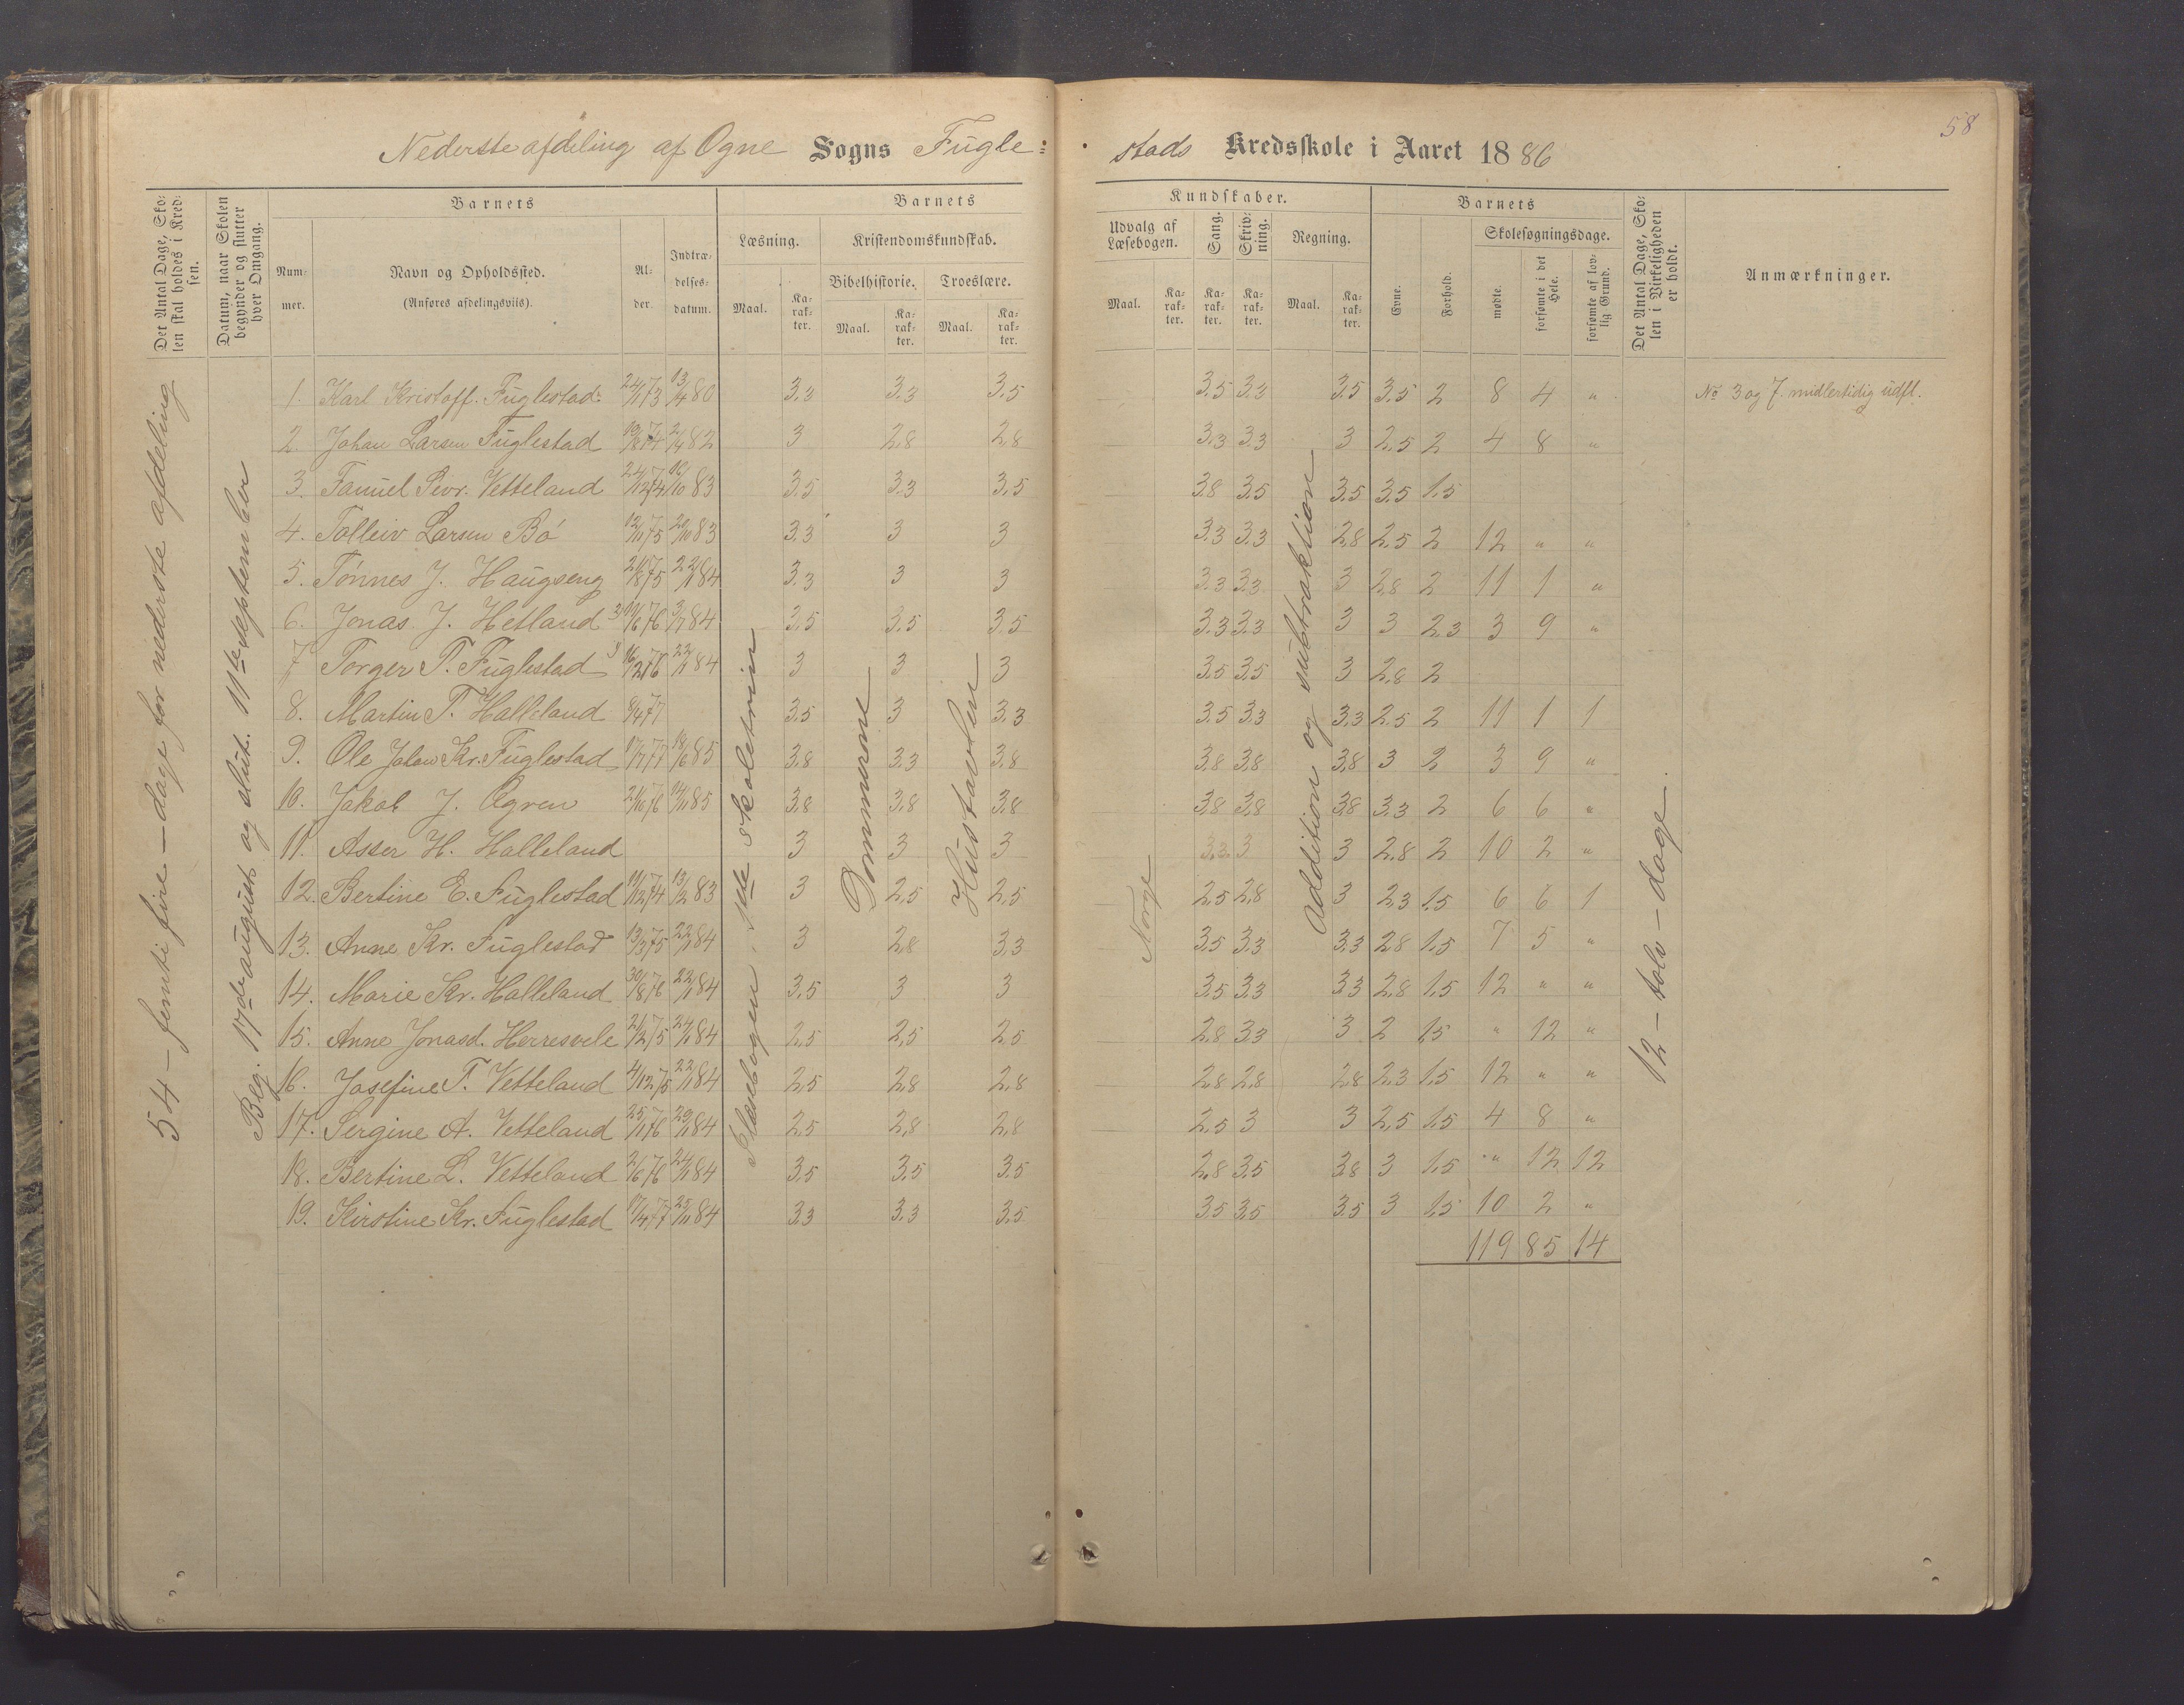 58
Nederste afdeling af Ogne Sogns Fugle=
stads Kredsskole i Aaret 1886
Det Antal Dage, Sko-
len skal holdes i Kred-
sen.
Datum, naar Skolen
begynder og slutter
hver Omgang.
Barnets
Num-
mer.
Navn og Opholdssted.
(Anføres afdelingsviis).
Al-
der.
Indtræ-
delses-
datum.
Barnets
Læsning.
Maal.
Ka-
rak-
ter.
Kristendomskundskab.
Bibelhistorie.
Maal.
Ka-
rak-
ter.
Troeslære.
Maal.
Ka-
rak-
ter.
Kundskaber.
Udvalg af
Læsebogen.
Maal.
Ka-
rak-
ter.
Sang.
Ka-
rak-
ter.
Skriv-
ning.
Ka-
rak-
ter.
Regning.
Maal.
Ka-
rak-
ter.
Barnets
Evne.
Forhold.
Skolesøgningsdage.
mødte.
forsømte i det
Hele.
forsømte af lov-
lig Grund.
Det Antal Dage, Sko-
len i Virkeligheden
er holdt.
Anmærkninger.
54 – femti fire – dage for nederste afdeling
Beg. 17de august og slut. 11te september
Læsebogen, 1ste skoletrin
Dommerne
Hustavlen
Norge
Addition og subtraktion
12 – tolv – dage.
1. Karl Kristoff. Fuglestad 24/1 73 13/4 80 3.3 3.3 3.5 3.5 3.3 3.5 3.5 2 8 4 " No 3 og 7 midlertidig udfl.
2. Johan Larsen Fuglestad 82 3 2,8 2,8 3.3 3.3 3 2,5 2 4 8 "
3. Sevr. Vetteland 24/12 74 16/10 83 3.5 3.3 3.5 3.8 3.5 3.5 3.5 1.5
4. Tolleiv Larsen Bø 83 3.3 3 3 3.3 3.3 2,8 2,5 2 12 " "
5. Tønnes J. Haugseng 84 3.3 3 3 3.3 3.3 3 2,8 2 11 1 "
6. Jonas J. Hetland 84 3,5 3,5 3,5 3.3 3.3 3 3 2,3 3 9 "
7 Torger T. Fuglestad 16/2 76 22/1 84 3 3 3 3.5 3.5 3 2,8 2
8. Martin T. Halleland 9/4 77 3.5 3 3.3 3.5 3.3 3.3 2.5 2 11 1 1
9. Ole Johan Kr. Fuglestad 17/7 77 18/6 85 3.8 3.3 3.8 3.8 3.8 3.8 3 2 3 9 "
10. Jakob J. Ogren 85 3.8 3.8 3.8 3.8 3.8 3.8 3.3 2 6 6 "
11. Asser H. Halleland 3 3 3 3.3 3 3 2.8 2 10 2 "
12. Bertine E. Fuglestad 13/2 83 3 2,5 2,5 2,5 2,8 3 2,3 1,5 6 6 1
13. Anne Kr. Fuglestad 13/3 75 22/1 84 3 2,8 3,3 3,5 3.3 3.3 2,8 1,5 7 5 "
14. Marie Kr. Halleland 30/8 76 22/1 84 3,5 3 3 3,5 3.3 3.3 2,8 1,5 12 " "
15. Anne Jonasd. Herresvele 21/2 75 84 2,5 2,5 2,5 2,8 3.3 3 2 1,5 " 12 "
16. Josefine T. Vetteland 4/12 75 22/1 84 2,5 2,8 2,8 2,8 2,8 2,8 2,3 1,5 12 " "
17. Sergine A. Vetteland 84 2,5 2,8 2,8 2,5 3 3 2,5 1,5 4 8 "
18. Bertine L. Vetteland 84 3,5 3,5 3.5 2,8 3,5 3,8 3 1,5 " 12 12
19. Kirstine Kr. Fuglestad 17/4 77 84 3.3 3.3 3,5 3,5 3,5 3.5 3 1,5 10 2 "
119 85 14